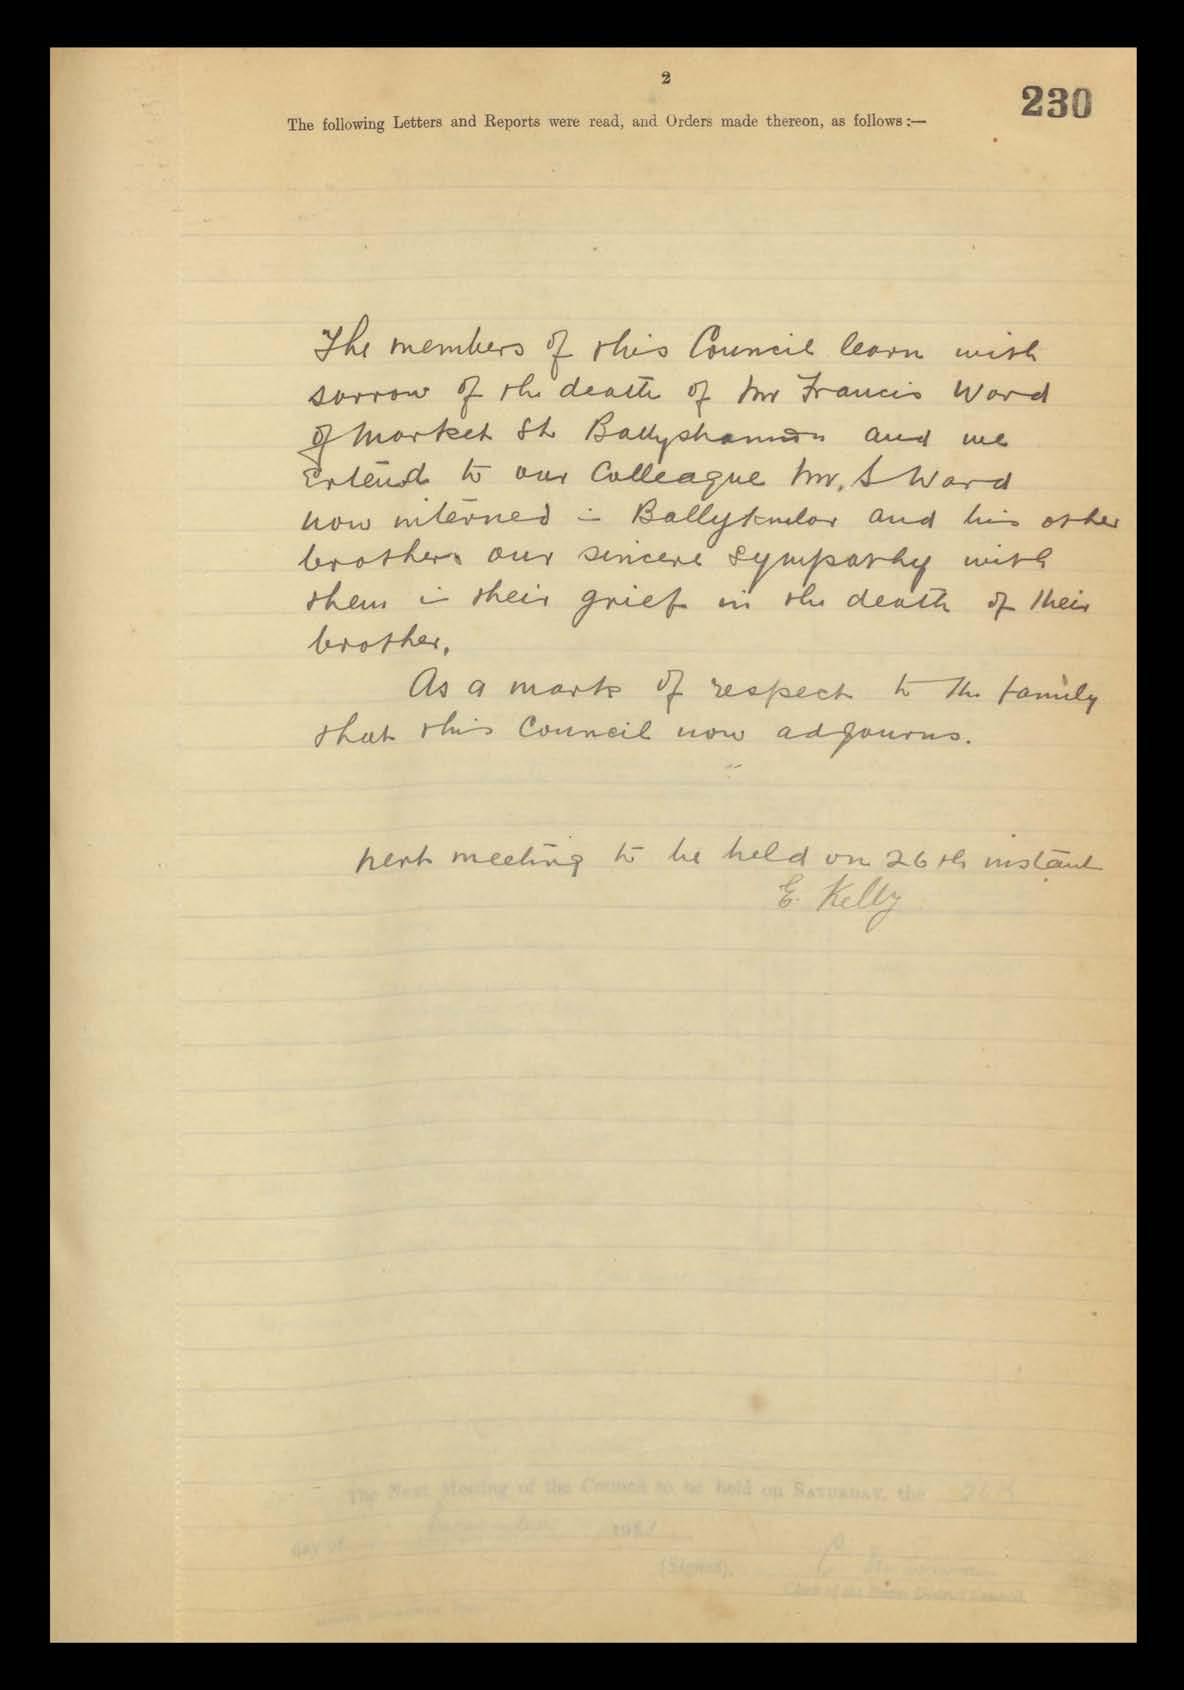 2
230
The following Letters and Reports were read, and Orders made thereon, as follows :—
The members of this Council learn with
sorrow of the death of Mr Francis Ward
of Market St Ballyshannon and we
Extend to our Colleague Mr. S Ward
now interned in Ballykinlar and his other
brothers our sincere sympathy with
them in their grief in the death of their
brother.
As a mark of respect to the family
that this Council now adjourns.
next meeting to be held on 26th instant
E. Kelly
The Next Meeting of the Council to be held on SATURDAY, the 26th
day of
(Signed),
Clerk of the Rural District Council.